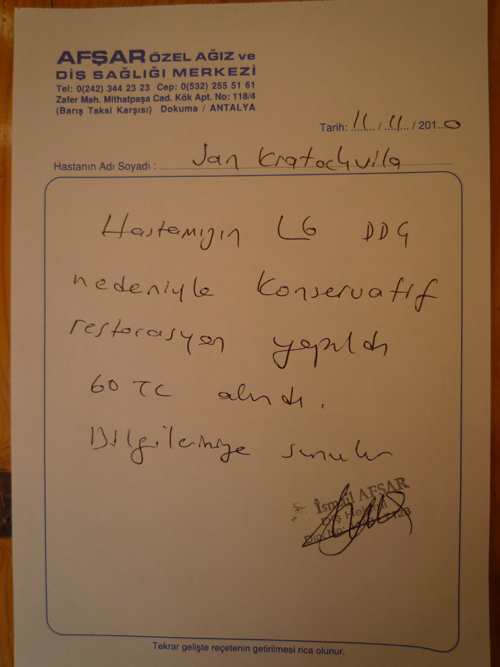 AFŞAR ÖZEL AĞIZ ve
DİŞ SAĞLIĞI MERKEZİ
Tel: 0(242) 344 23 23 Cep: 0(532) 255 51 61
Zafer Mah. Mithatpaşa Cad. Kök Apt. No: 118/4
(Barış Taksi Karşısı) Dokuma / ANTALYA
Tarih: 11 / 11 / 2010
Hastanın Adı Soyadı : Jan Kratochvila
Hastamızın L6 DDÇ
nedeniyle konservatif
restorasyon yapıldı
60 TL alındı.
Bilgilerinize sunulur
İsmail AFŞAR
Diş Hekimi
Tekrar gelişte reçetenin getirilmesi rica olunur.